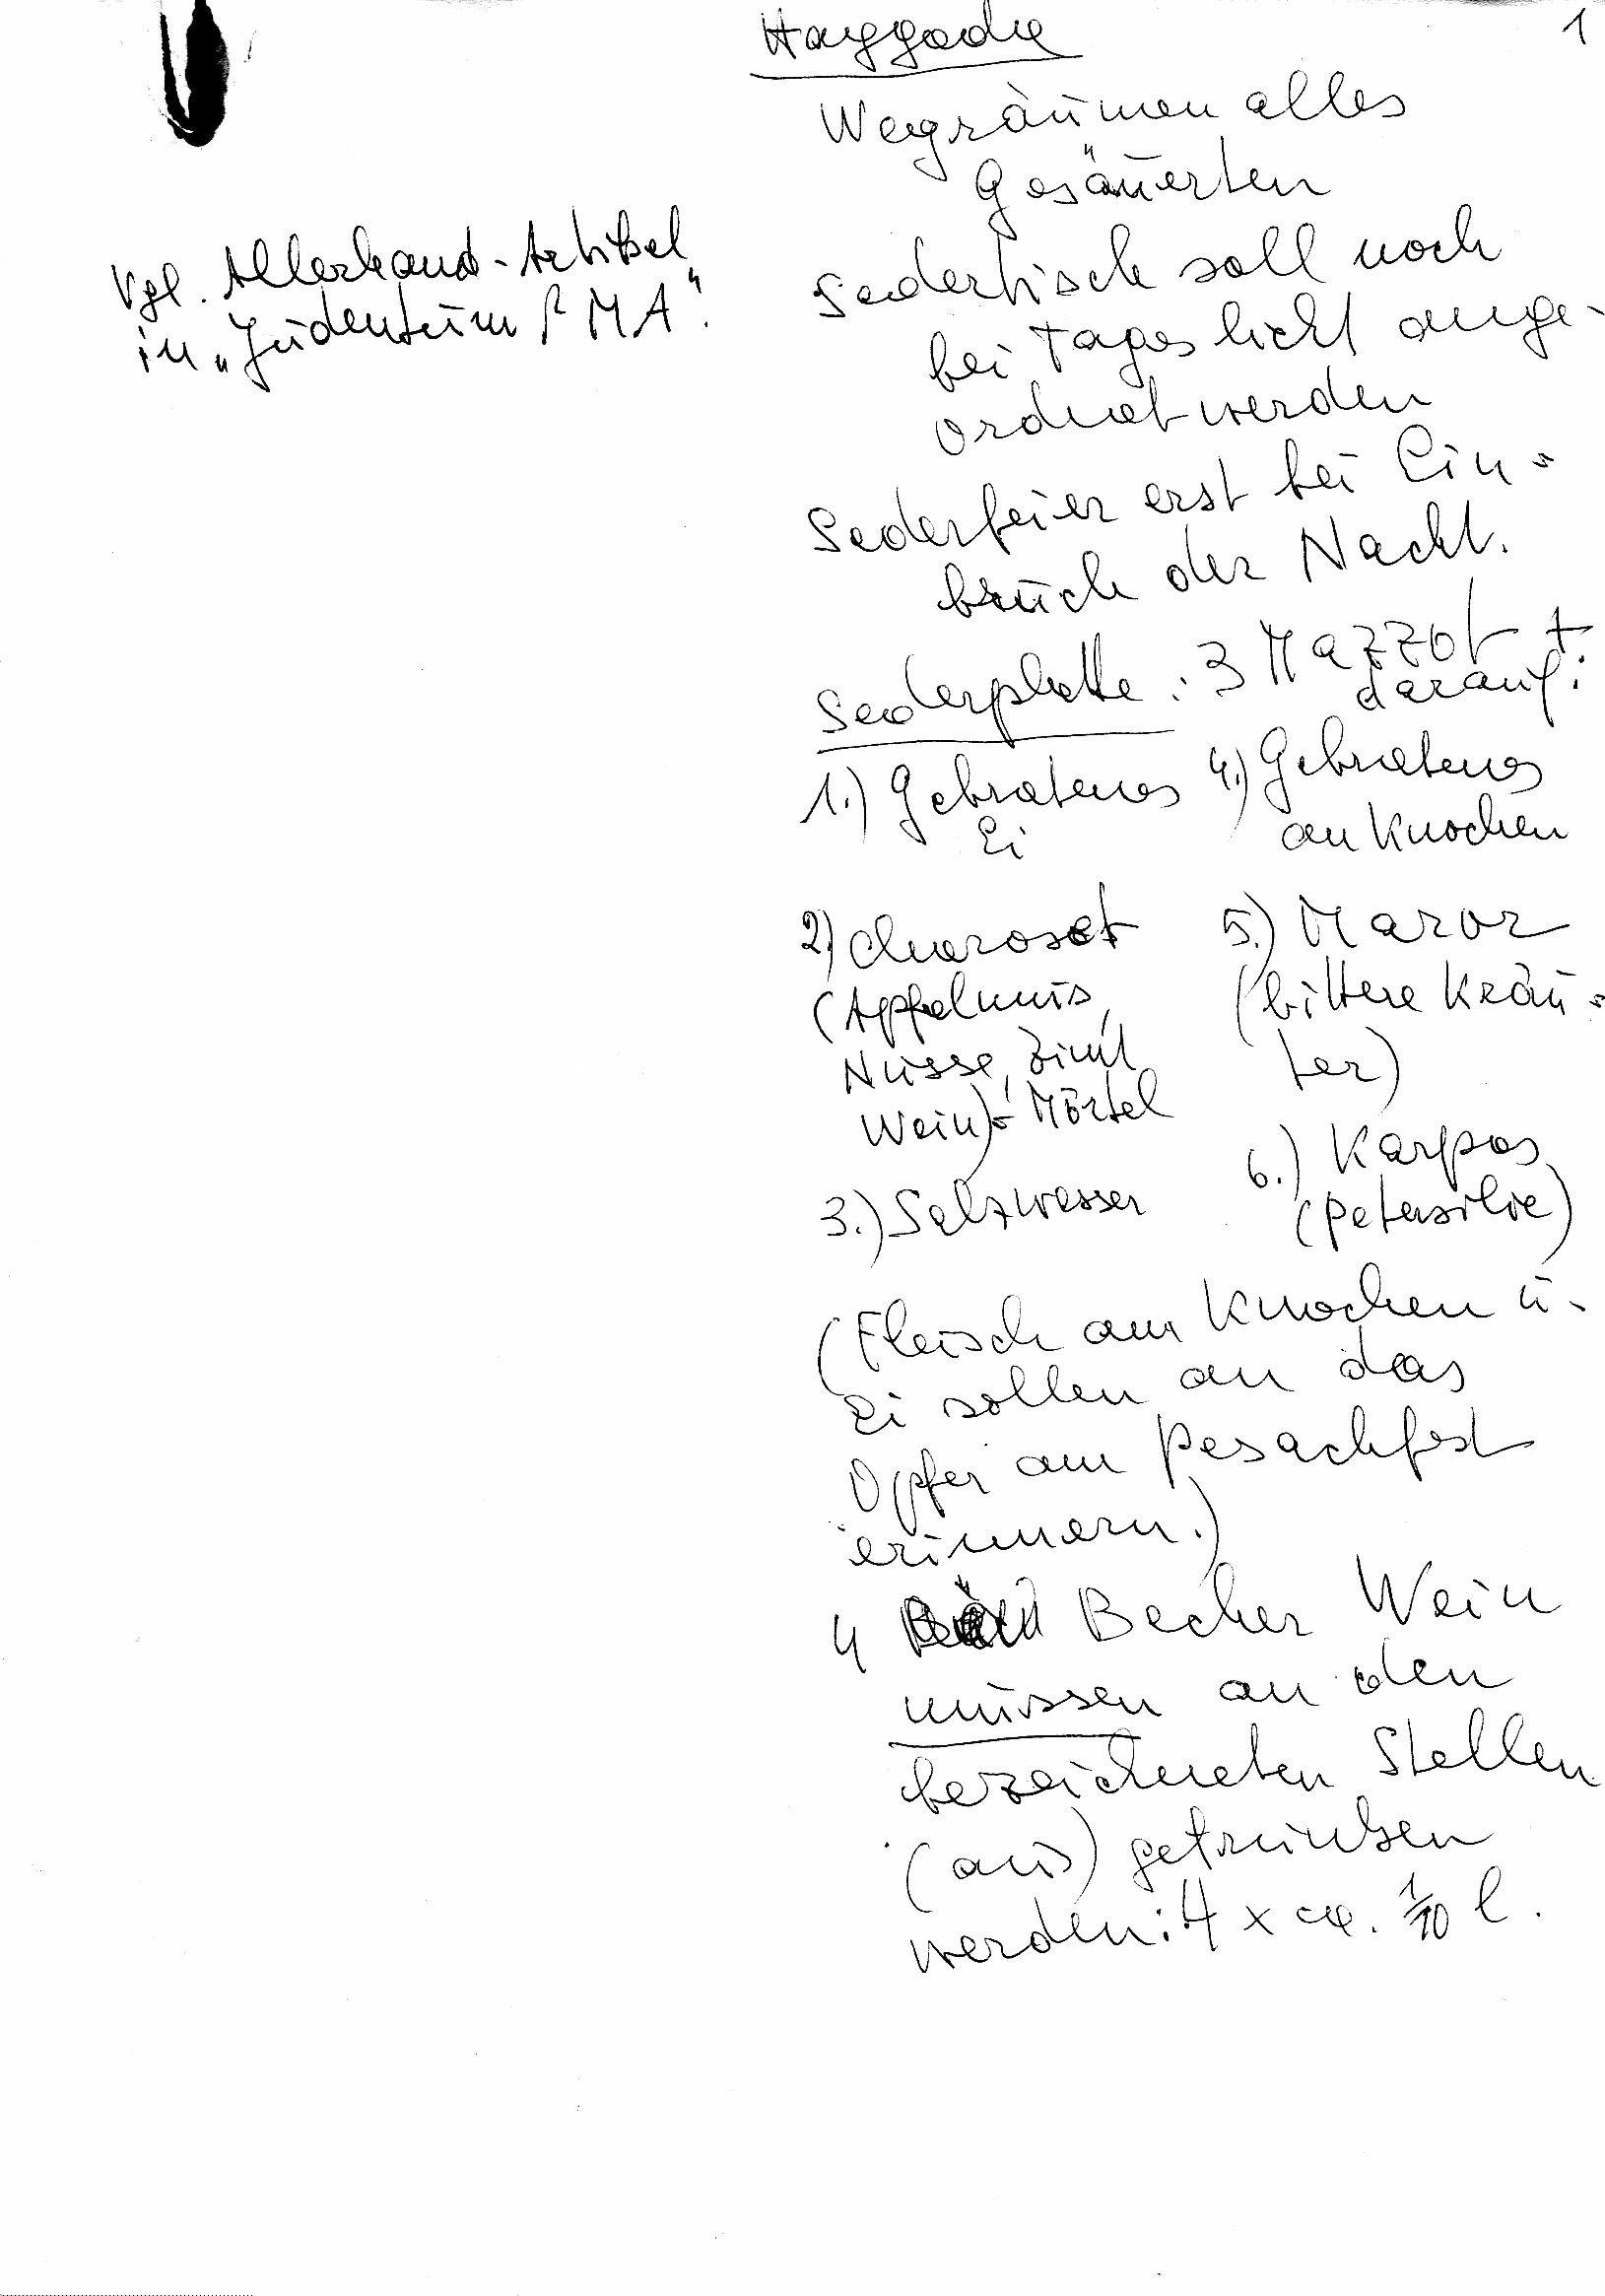 Haggada
1
Wegräumen alles
Gesäuerten
Vgl. Allerhand-Artikel
in „Judentum i MA".
Sedertisch soll noch
bei Tageslicht ange-
ordnet werden
Sederfeier erst bei Ein-
bruch der Nacht.
Sederplatte: 3 Mazzot +
darauf:
1.) Gebratenes
Ei
2) Charoset
(Apfelmus,
Nüsse, Zimt
Wein) Mörtel
3.) Salzwasser
4.) Gebratenes
am Knochen
5.) Maror
(bittere Kräu-
ter)
6.) Karpas
(Petersilie)
(Fleisch am Knochen u.
Ei sollen an das
Opfer am Pesachfest
erinnern.)
4 Becher Wein
müssen an den
bezeichneten Stellen
(aus) getrunken
werden: 4 x ca. 1/10 l.